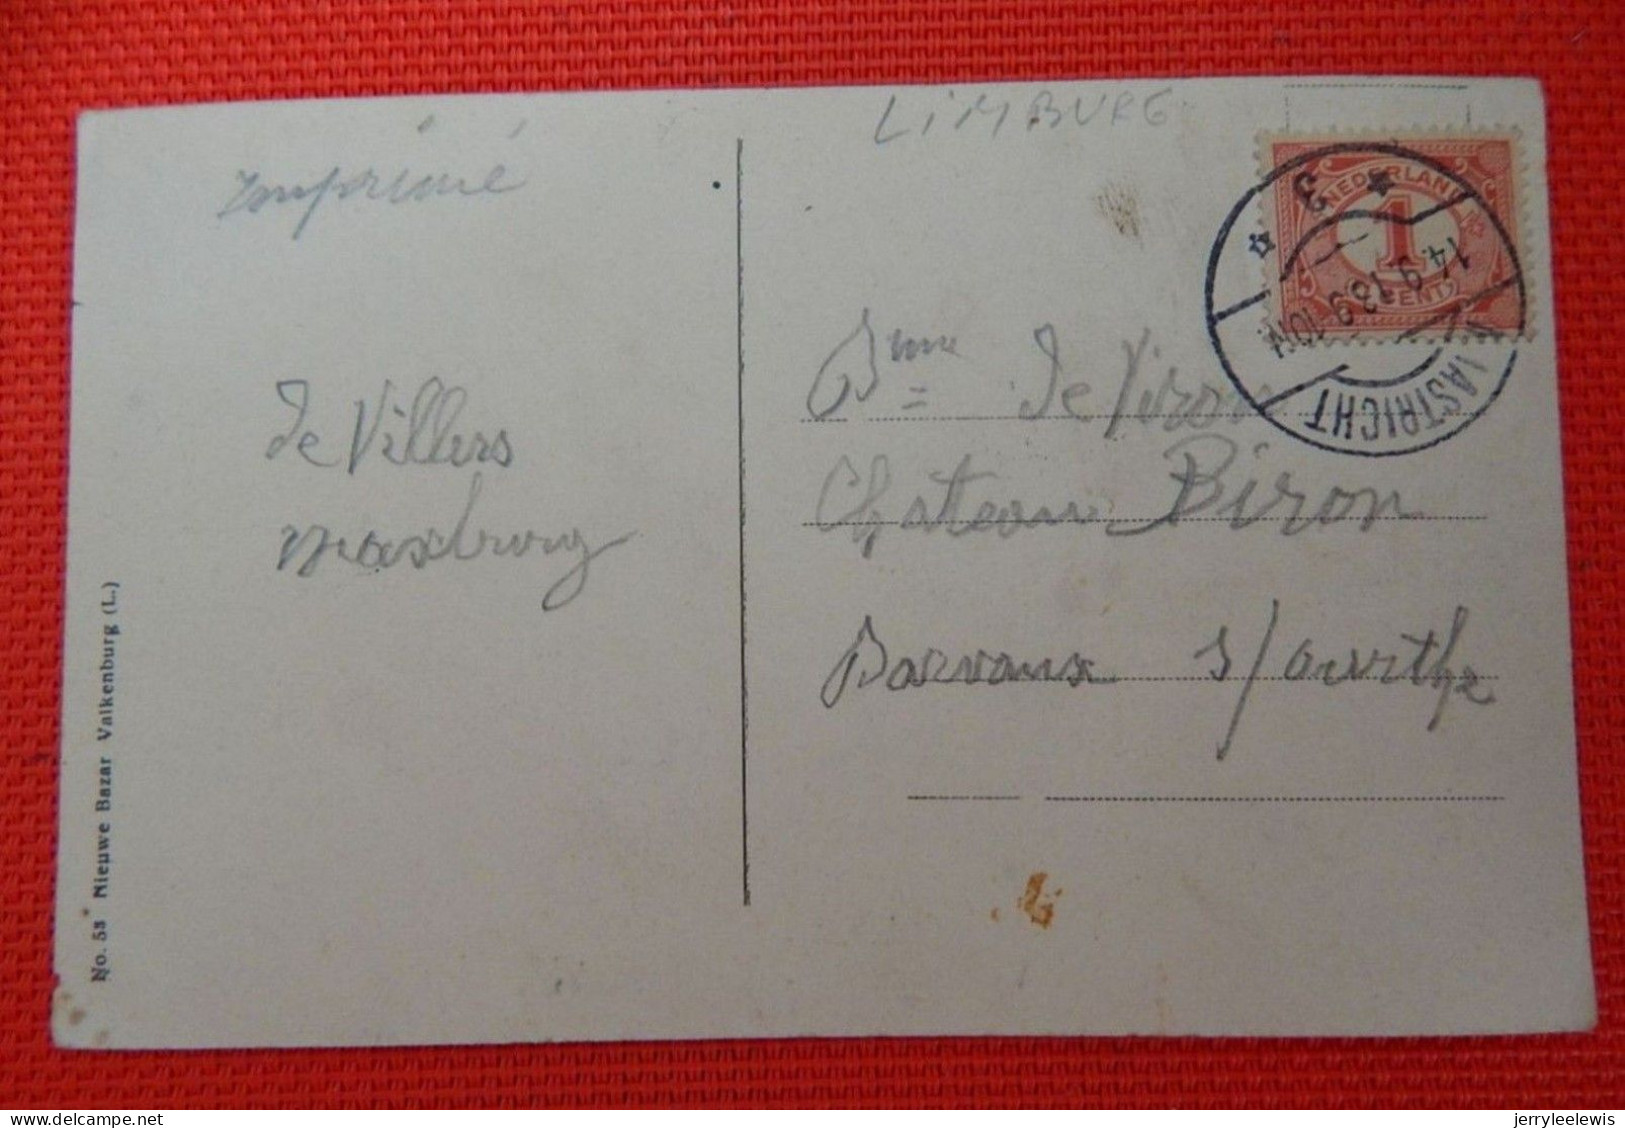 LIMBURG
Imprimé
NEDERLAND
1
CENT
3
14.9.13.9-10N
MAASTRICHT
de Villers
masburg
Bme de Viron
Château Biron
Barvaux s/ourthe
No. 53 Nieuwe Bazar Valkenburg (L.)
jerryleelewis
delcampe.net